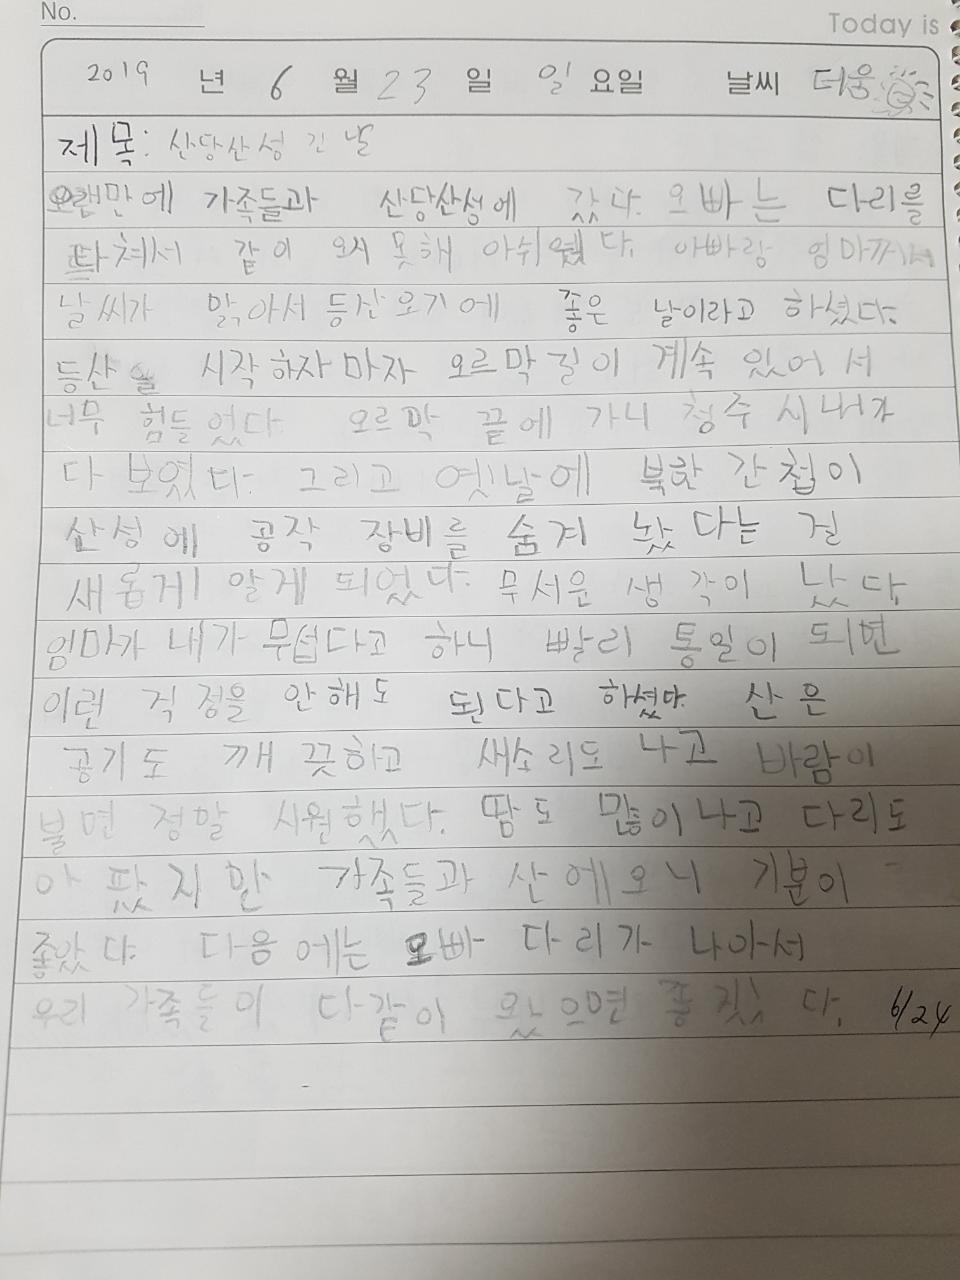 No.
Today is
2019 년 6 월 23 일 일 요일 날씨 더움
제목: 산당산성 간 날
오랜만에 가족들과 산당산성에 갔다. 오빠는 다리를
다쳐서 같이 오지 못해 아쉬웠다. 아빠랑 엄마께서
날씨가 맑아서 등산오기에 좋은 날이라고 하셨다.
등산을 시작하자마자 오르막길이 계속 있어서
너무 힘들었다. 오르막 끝에 가니 청주 시내가
다 보였다. 그리고 옛날에 북한 간첩이
산성에 공작 장비를 숨겨 놨다는 걸
새롭게 알게 되었다. 무서운 생각이 났다.
엄마가 내가 무섭다고 하니 빨리 통일이 되면
이런 걱정을 안해도 된다고 하셨다. 산은
공기도 깨끗하고 새소리도 나고 바람이
불면 정말 시원했다. 땀도 많이나고 다리도
아팠지만 가족들과 산에오니 기분이
좋았다. 다음에는 오빠 다리가 나아서
우리 가족들이 다같이 왔으면 좋겠다. 6/24